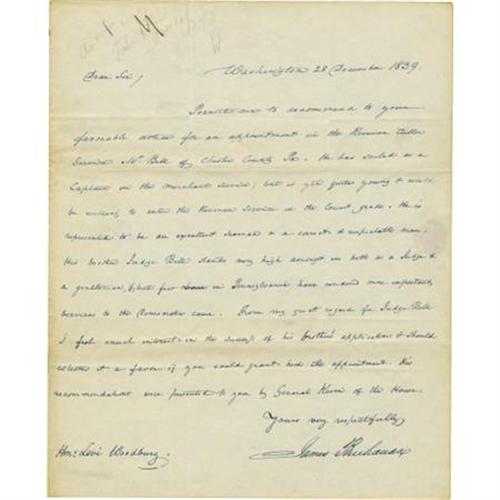 Washington 28 December 1839.
Dear Sir,
Permit me to recommend to your
favorable notice for an appointment in the Revenue Cutter
Service Mr Bell of Chester County Pa. He has sailed as a
Captain in the merchant service; but is yet quite young & would
be willing to enter the Revenue Service in the lowest grade. He is
represented to be an excellent seaman & a correct & respectable man.
His brother Judge Bell stands very high amongst us both as a Judge &
a gentleman, & few in Pennsylvania have rendered more important
services to the Democratic cause. From my great regard for Judge Bell
I feel much interest in the success of his brother's application & should
esteem it a favor if you could grant him the appointment. His
recommendations were presented to you by General of the House.
Yours very respectfully
James Buchanan
Hon: Levi Woodbury.